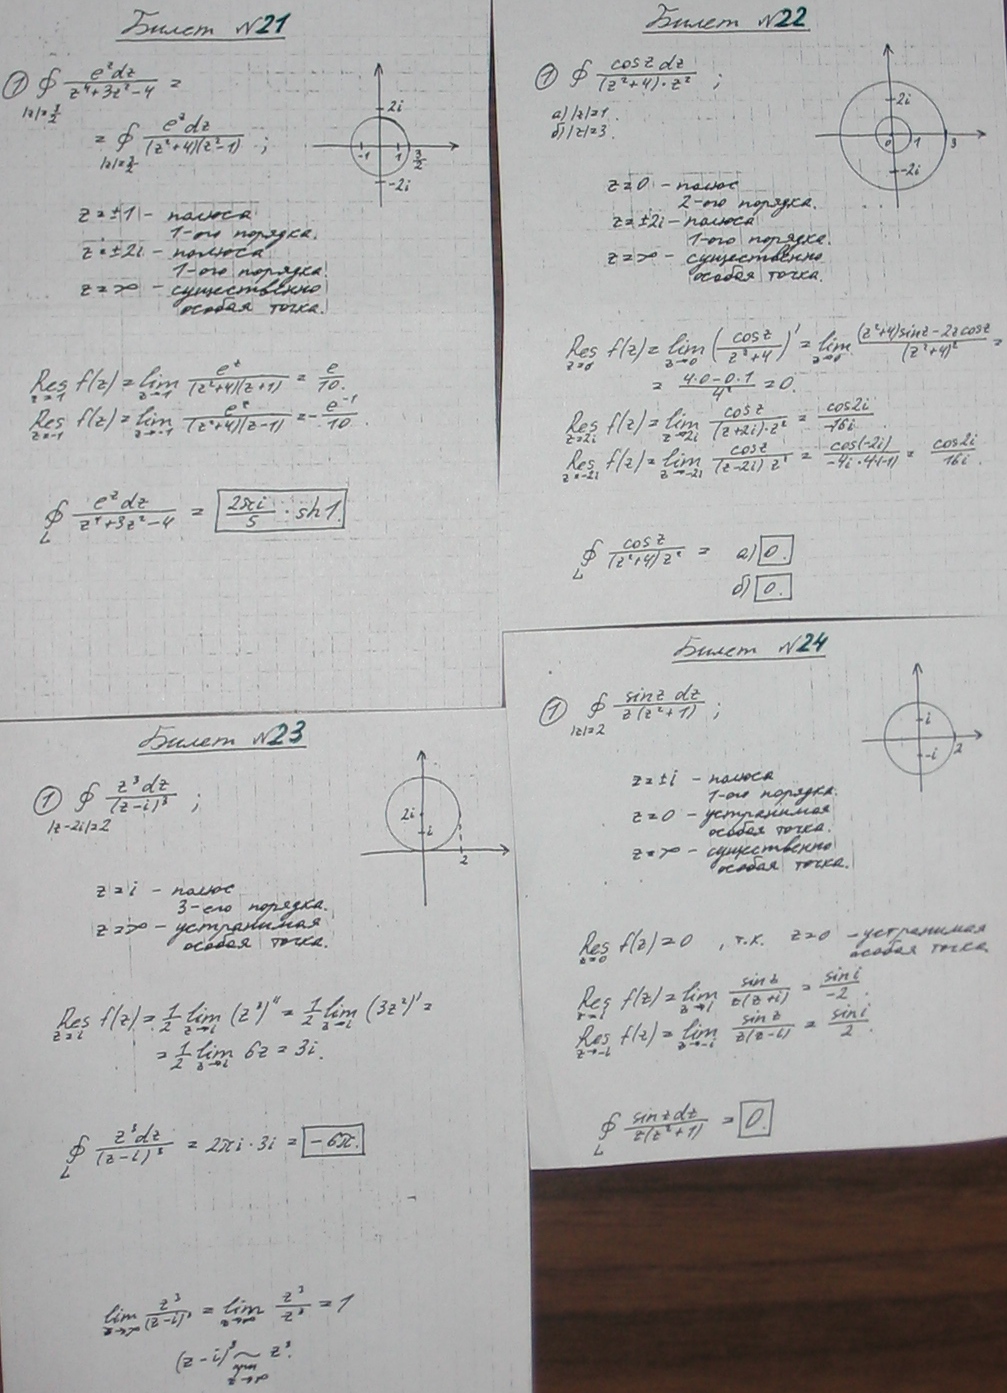 Билет №21
① ∮ e^z dz / (z⁴+3z²−4) =
|z|=3/2
= ∮ e^z dz / ((z²+4)(z²−1)) ;
|z|=3/2
2i
-1 1 3/2
-2i
z=±1 – полюса
1-ого порядка.
z=±2i – полюса
1-ого порядка.
z=∞ – существенно
особая точка.
Res f(z) = lim e^z / ((z²+4)(z+1)) = e/10.
z=1 z→1
Res f(z) = lim e^z / ((z²+4)(z−1)) = −e^{-1}/10.
z=-1 z→-1
∮ e^z dz / (z⁴+3z²−4) = 2πi/5 · sh1.
L
Билет №22
① ∮ cosz dz / ((z²+4)·z²) ;
а) |z|=1.
б) |z|=3.
2i
0 1 3
-2i
z=0 – полюс
2-ого порядка.
z=±2i – полюса
1-ого порядка.
z=∞ – существенно
особая точка.
Res f(z) = lim (cosz / (z²+4))' = lim ((z²+4)sinz − 2zcosz) / (z²+4)² =
z=0 z→0 z→0
= (4·0−0·1) / 4² = 0.
Res f(z) = lim cosz / ((z+2i)·z²) = cos2i / -16i
z=2i z→2i
Res f(z) = lim cosz / ((z−2i) z²) = cos(-2i) / (-4i·4(-1)) = cos2i / 16i
z=-2i z→-2i
∮ cosz / ((z²+4)z²) = а) 0.
L
б) 0.
Билет №23
① ∮ z³dz / (z−i)³ ;
|z−2i|=2
2i
i
2
z=i – полюс
3-его порядка.
z=∞ – устранимая
особая точка.
Res f(z) = 1/2 lim (z³)'' = 1/2 lim (3z²)' =
z=i z→i z→i
= 1/2 lim 6z = 3i.
z→i
∮ z³dz / (z−i)³ = 2πi·3i = −6π.
L
lim z³ / (z−i)³ = lim z³ / z³ = 1
z→∞ z→∞
(z−i)³ ~ z³.
при
z→∞
Билет №24
① ∮ sinz dz / (z(z²+1)) ;
|z|=2
i
2
-i
z=±i – полюса
1-ого порядка.
z=0 – устранимая
особая точка.
z=∞ – существенно
особая точка.
Res f(z) = 0 , т.к. z=0 – устранимая
z=0
особая точка.
Res f(z) = lim sinz / (z(z+i)) = sini / -2.
z=i z→i
Res f(z) = lim sinz / (z(z−i)) = sini / 2.
z=-i z→-i
∮ sinzdz / (z(z²+1)) = 0.
L